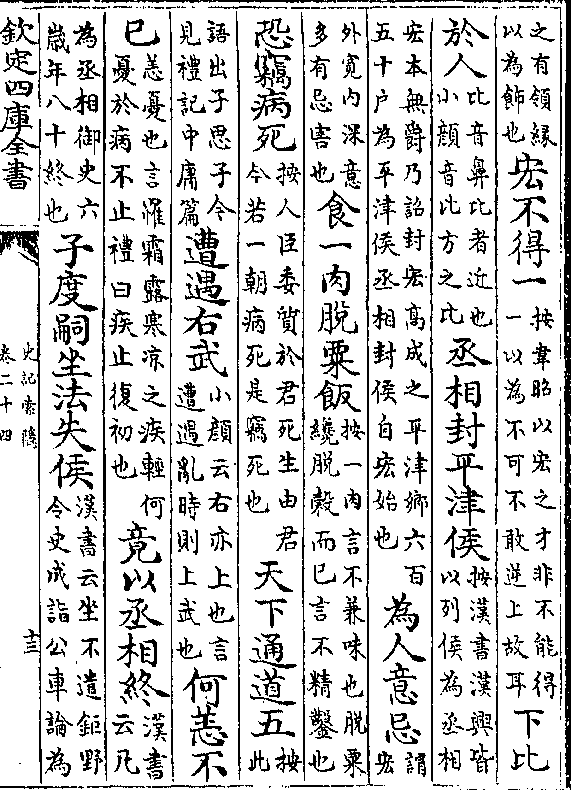 之有領緣以為飾也宏不得一按韋昭以宏之才非不能得一以為不可不敢逆上故耳下比
於人比音鼻比者近也小顔音比方之比丞相封平津侯按漢書漢興皆以列侯為丞相
宏本無爵乃詔封宏髙成之平津鄉六百五十户為平津侯丞相封侯自宏始也為人意忌謂宏
外寛内深意多有忌害也食一肉脱粟飯按一肉言不兼味也脱粟纔脱榖而已言不精鑿也
恐竊病死按人臣委質於君死生由君今若一朝病死是竊死也天下通道五按此
語出子思子今見禮記中庸篇遭遇右武小顔云右亦上也言遭遇亂時則上武也何恙不
已恙憂也言罹霜露寒凉之疾輕何憂於病不止禮曰疾止復初也竟以丞相終漢書云凡
為丞相御史六嵗年八十終也子度嗣坐法失侯漢書云坐不遣鉅野令史成詣公車論為
欽定四庫全書
史記索隱
卷二十四
十三